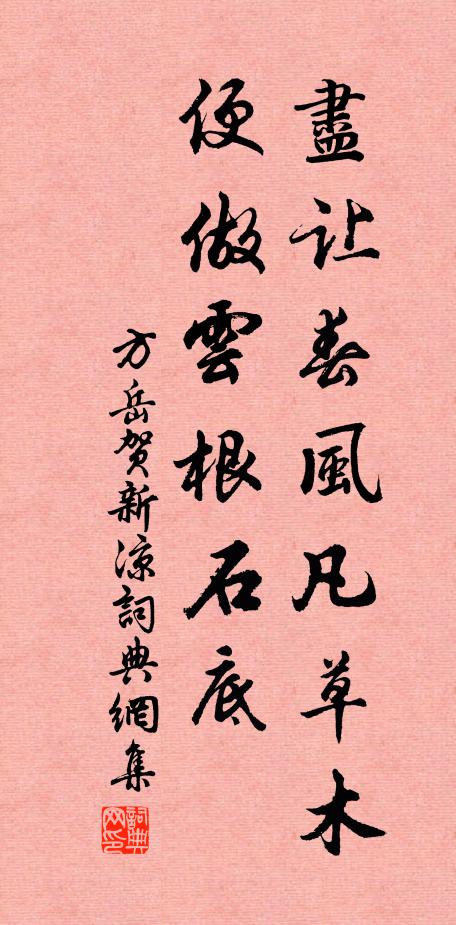 盡让春風凡草木
便做雲根石底
方岳贺新凉詞典網集
詞典网印